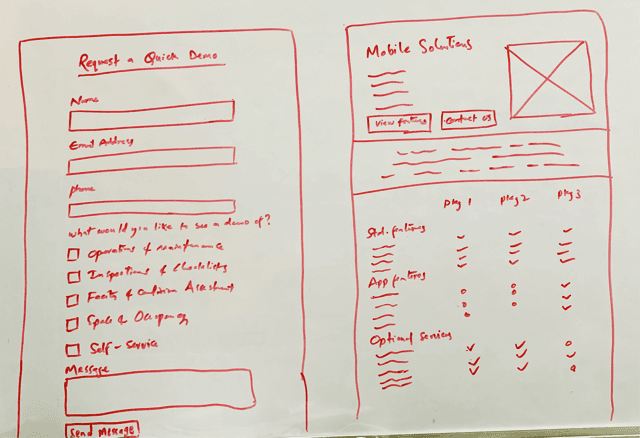 Request a Quick Demo
Name
Email Address
Phone
What would you like to see a demo of?
Operations & Maintenance
Inspections & Checklists
Facility & Condition Assessment
Space & Occupancy
Self-Service
Message
Send Message
Mobile Solutions
View features
Contact us
pkg 1 pkg 2 pkg 3
Std. features
App features
Optional Services